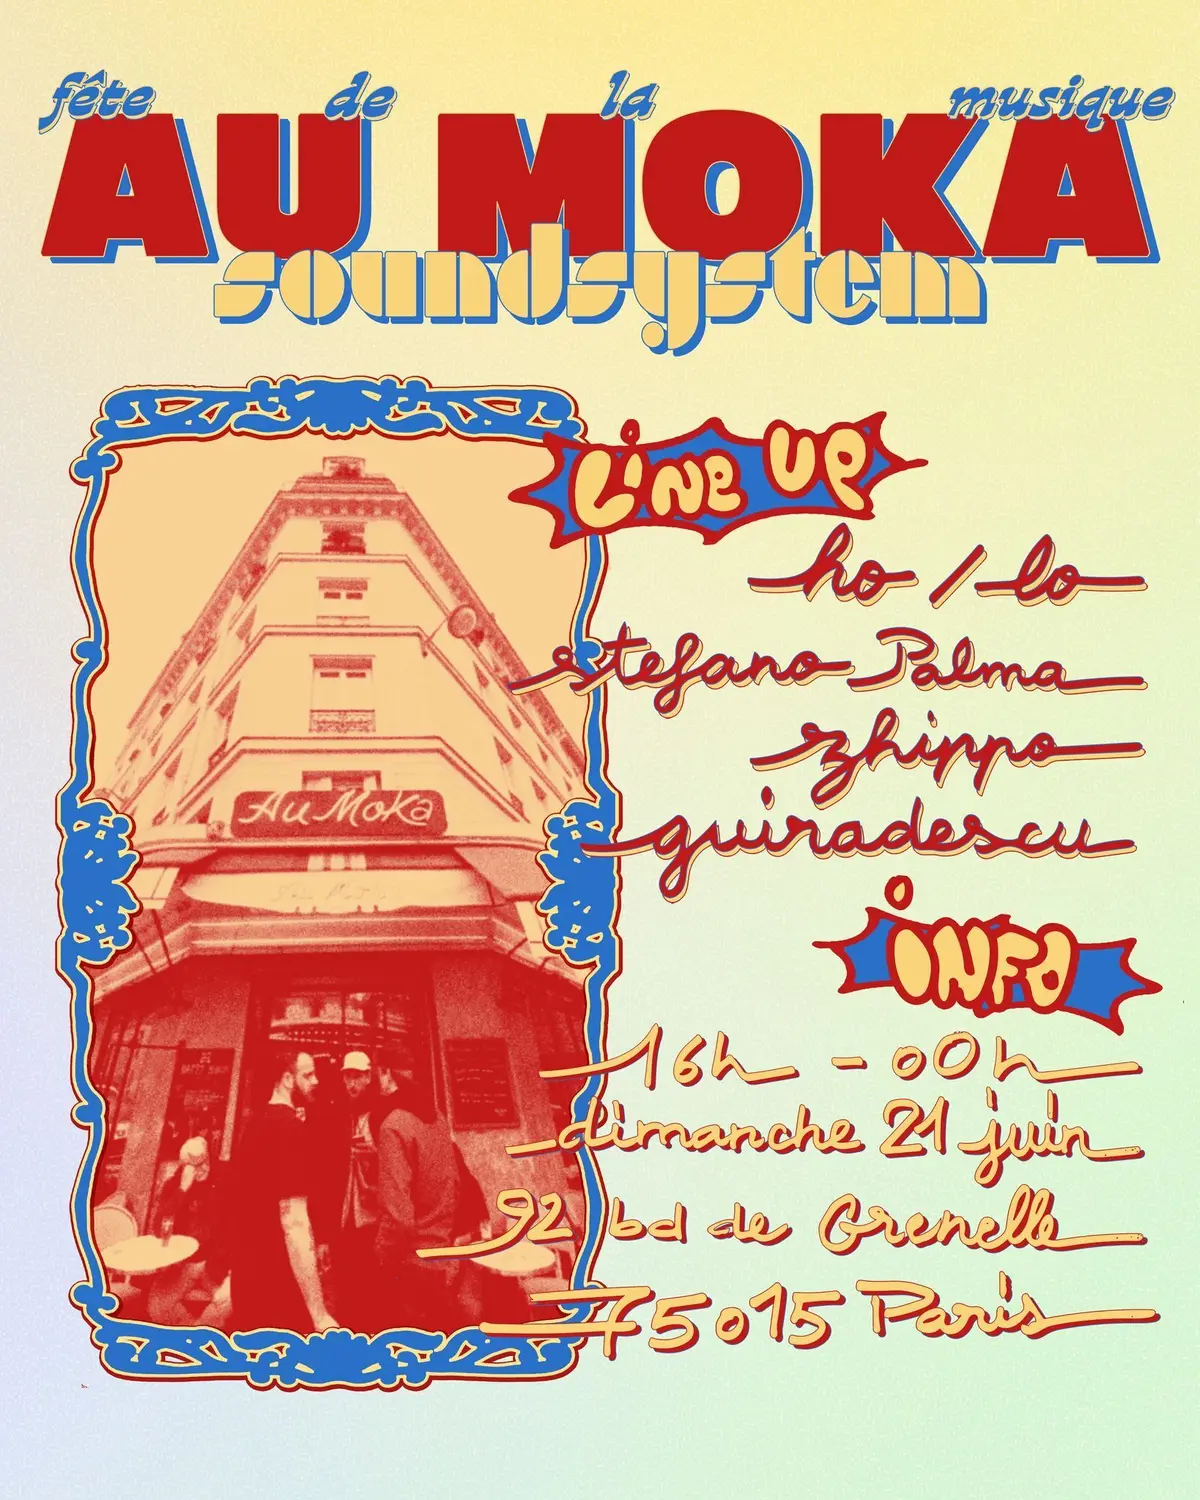 fête de la musique
AU MOKA
soundsystem
LiNe UP
ho / lo
stefano Palma
zhippo
guiradescu
Au Moka
iNFO
16h - 00h
dimanche 21 juin
92 bd de Grenelle
75015 Paris